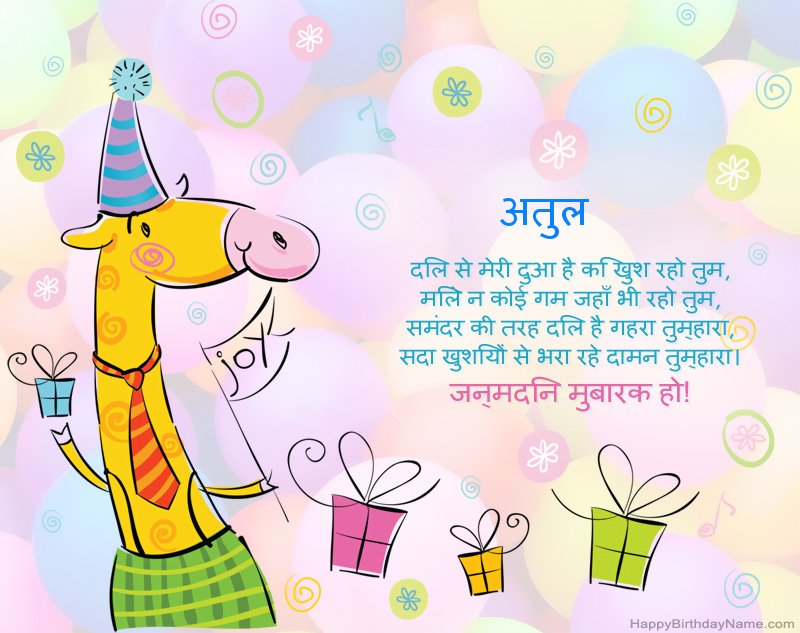 अतुल
दलि से मेरी दुआ है क िखुश रहो तुम,
मलिे न कोई गम जहाँ भी रहो तुम,
समंदर की तरह दलि है गहरा तुम्हारा,
सदा खुशयिों से भरा रहे दामन तुम्हारा।
जन्मदनि मुबारक हो!
joy
HappyBirthdayName.com